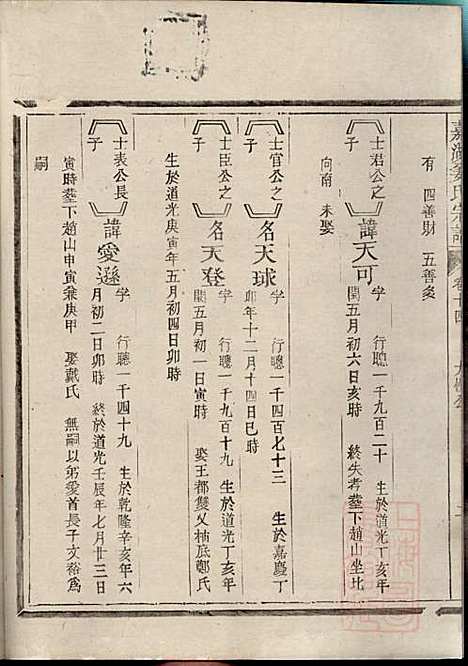 姜氏宗譜 卷十四
有 四善財 五善多
士君公之子
諱天可 字 行聰一千九百二十 生於道光丁亥年
閏五月初六日亥時 終失考 塟下趙山坐北
向南 未娶
士官公之子
名天球 字 行聰一千四百七十三 生於嘉慶丁
卯年十二月十四日巳時
士臣公之子
名天登 字 行聰一千九百十九 生於道光丁亥年
閏五月初一日寅時 娶王都雙乂柿底鄭氏
生於道光庚寅年五月初四日卯時
士表公長子
諱愛遜 字 行聰一千四十九 生於乾隆辛亥年六
月初二日卯時 終於道光壬辰年七月廿三日
寅時塟下趙山申寅兼庚甲 娶戴氏 無嗣以弟愛首長子文裕為
嗣